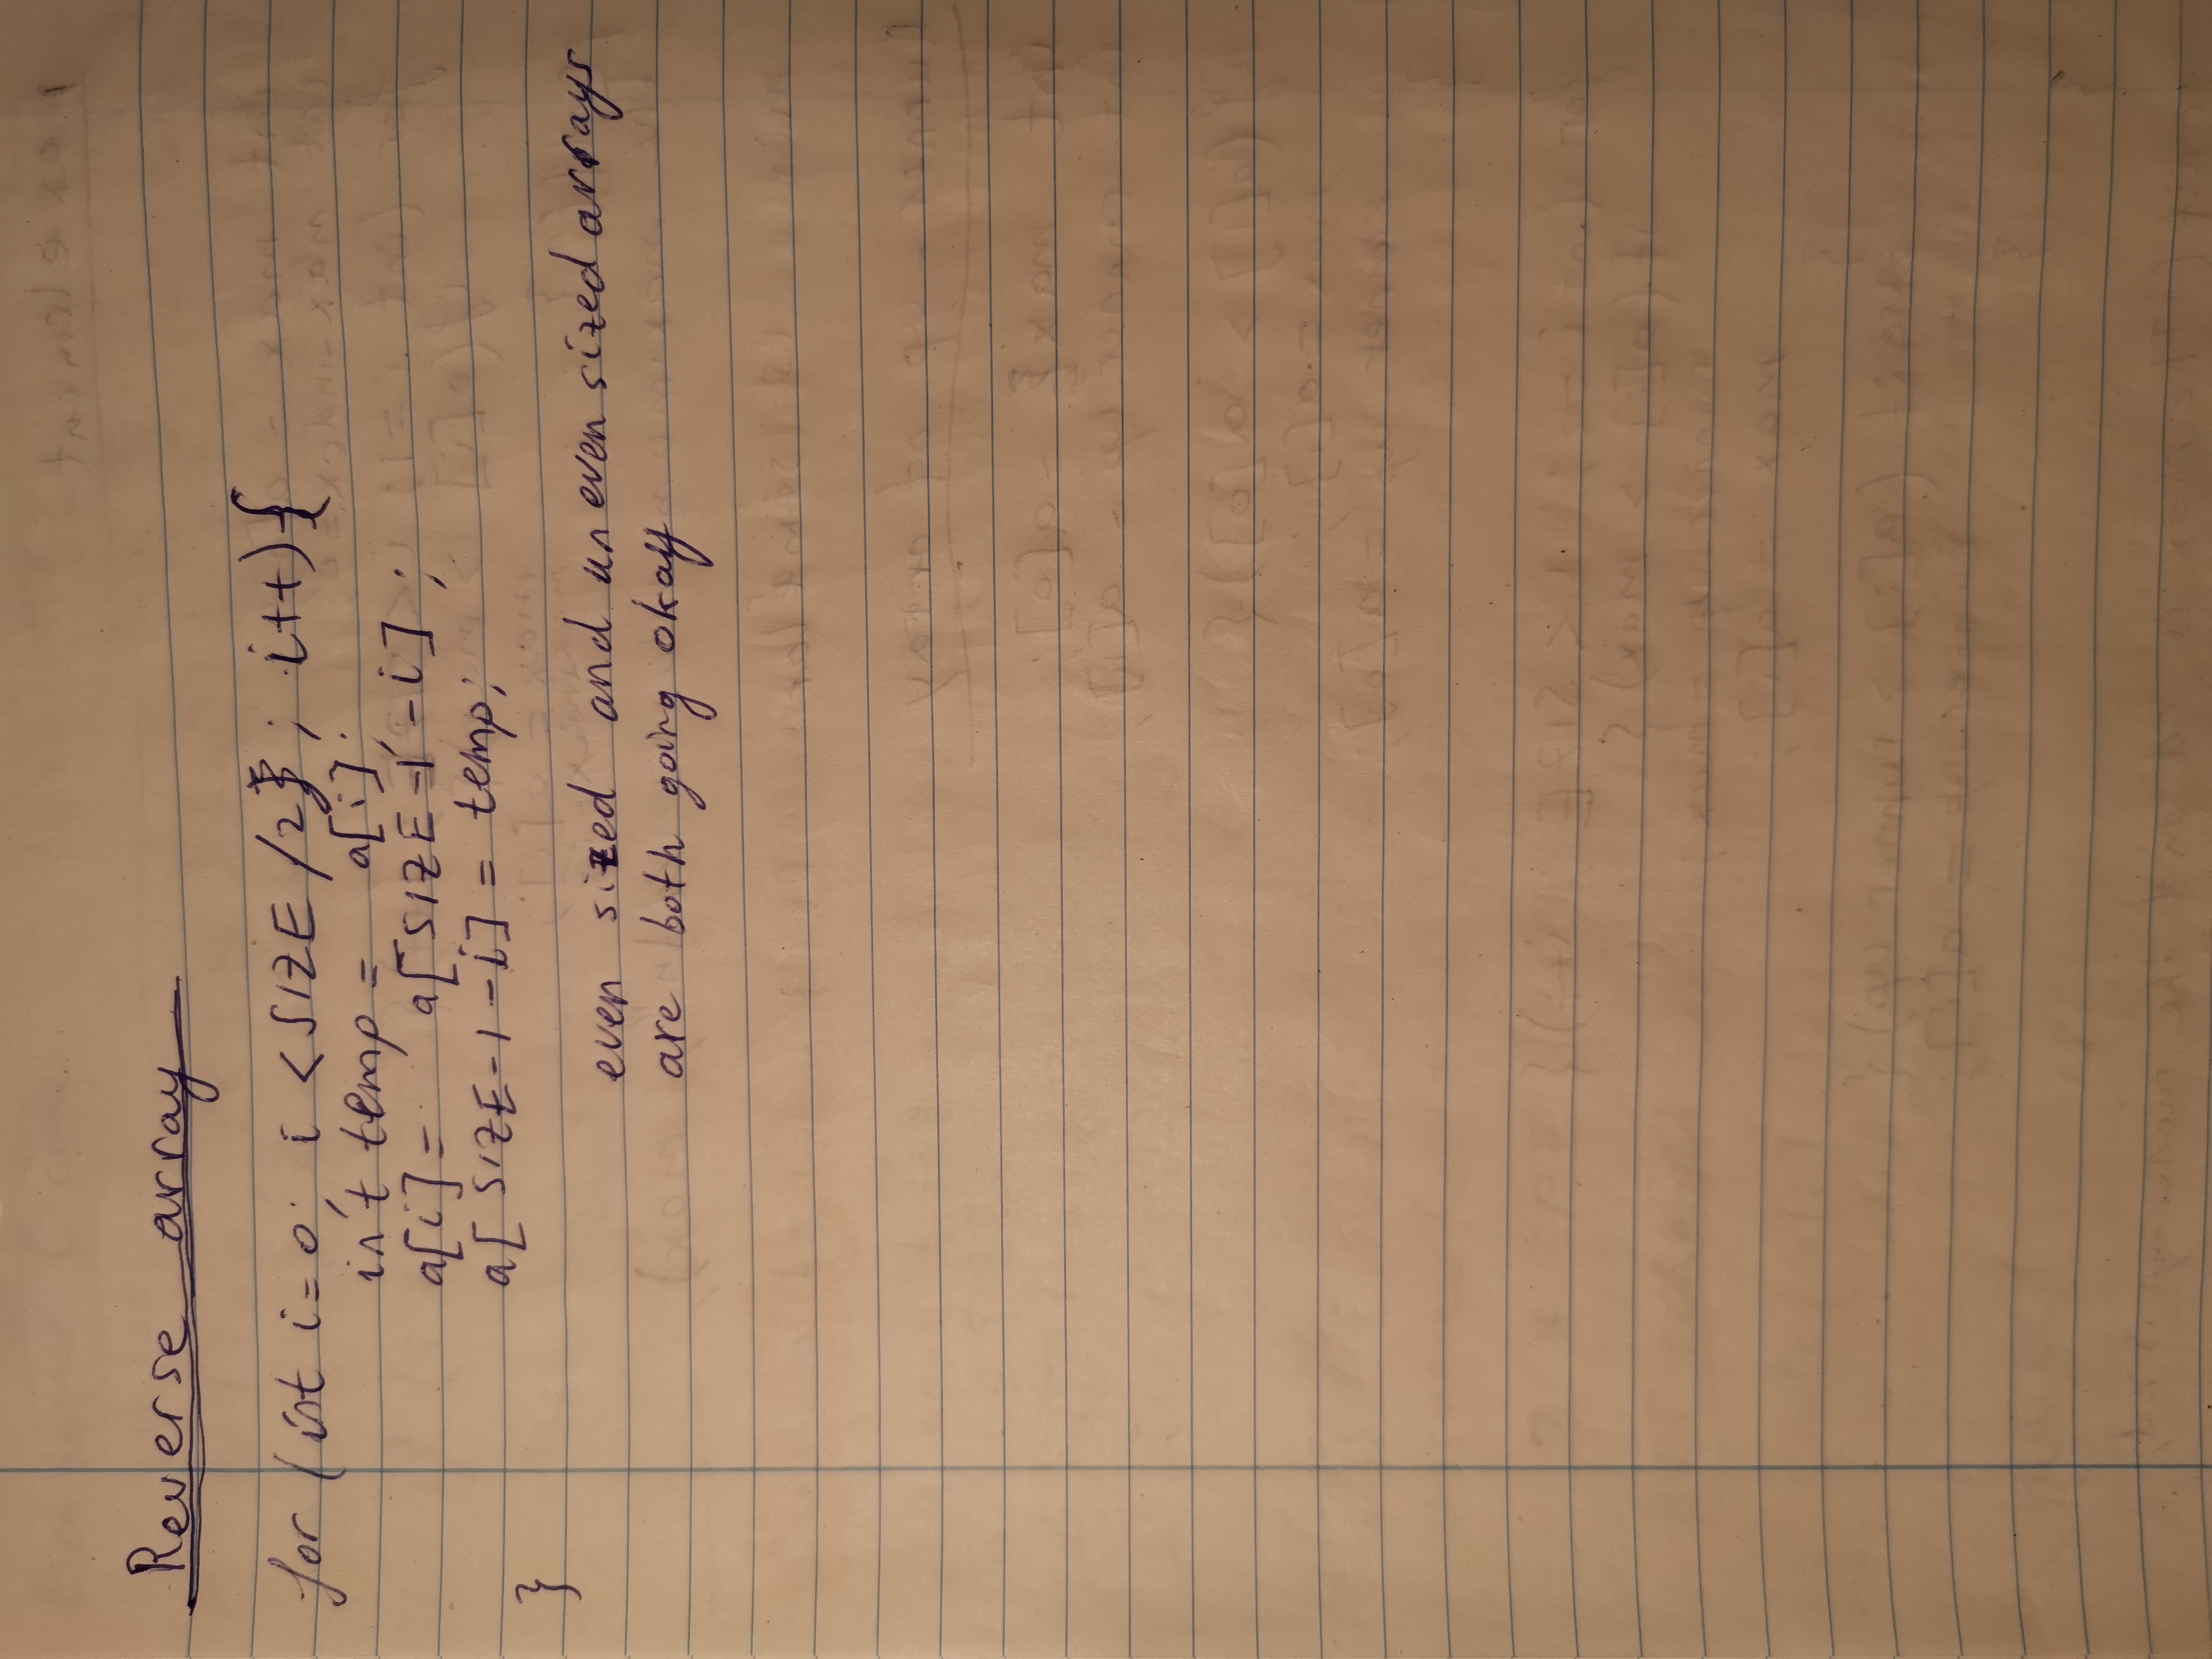 Reverse array
for (int i=0; i < SIZE/2; i++){
int temp = a[i];
a[i] = a[SIZE-1-i];
a[SIZE-1-i] = temp;
}
even sized and uneven sized arrays
are both going okay